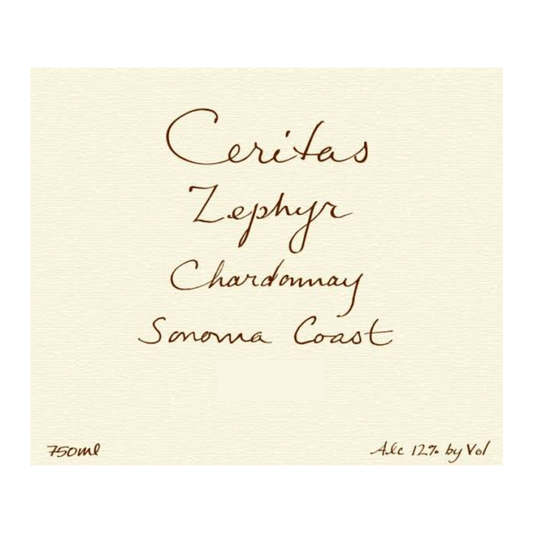 Ceritas
Zephyr
Chardonnay
Sonoma Coast
750ml
Alc 12% by Vol